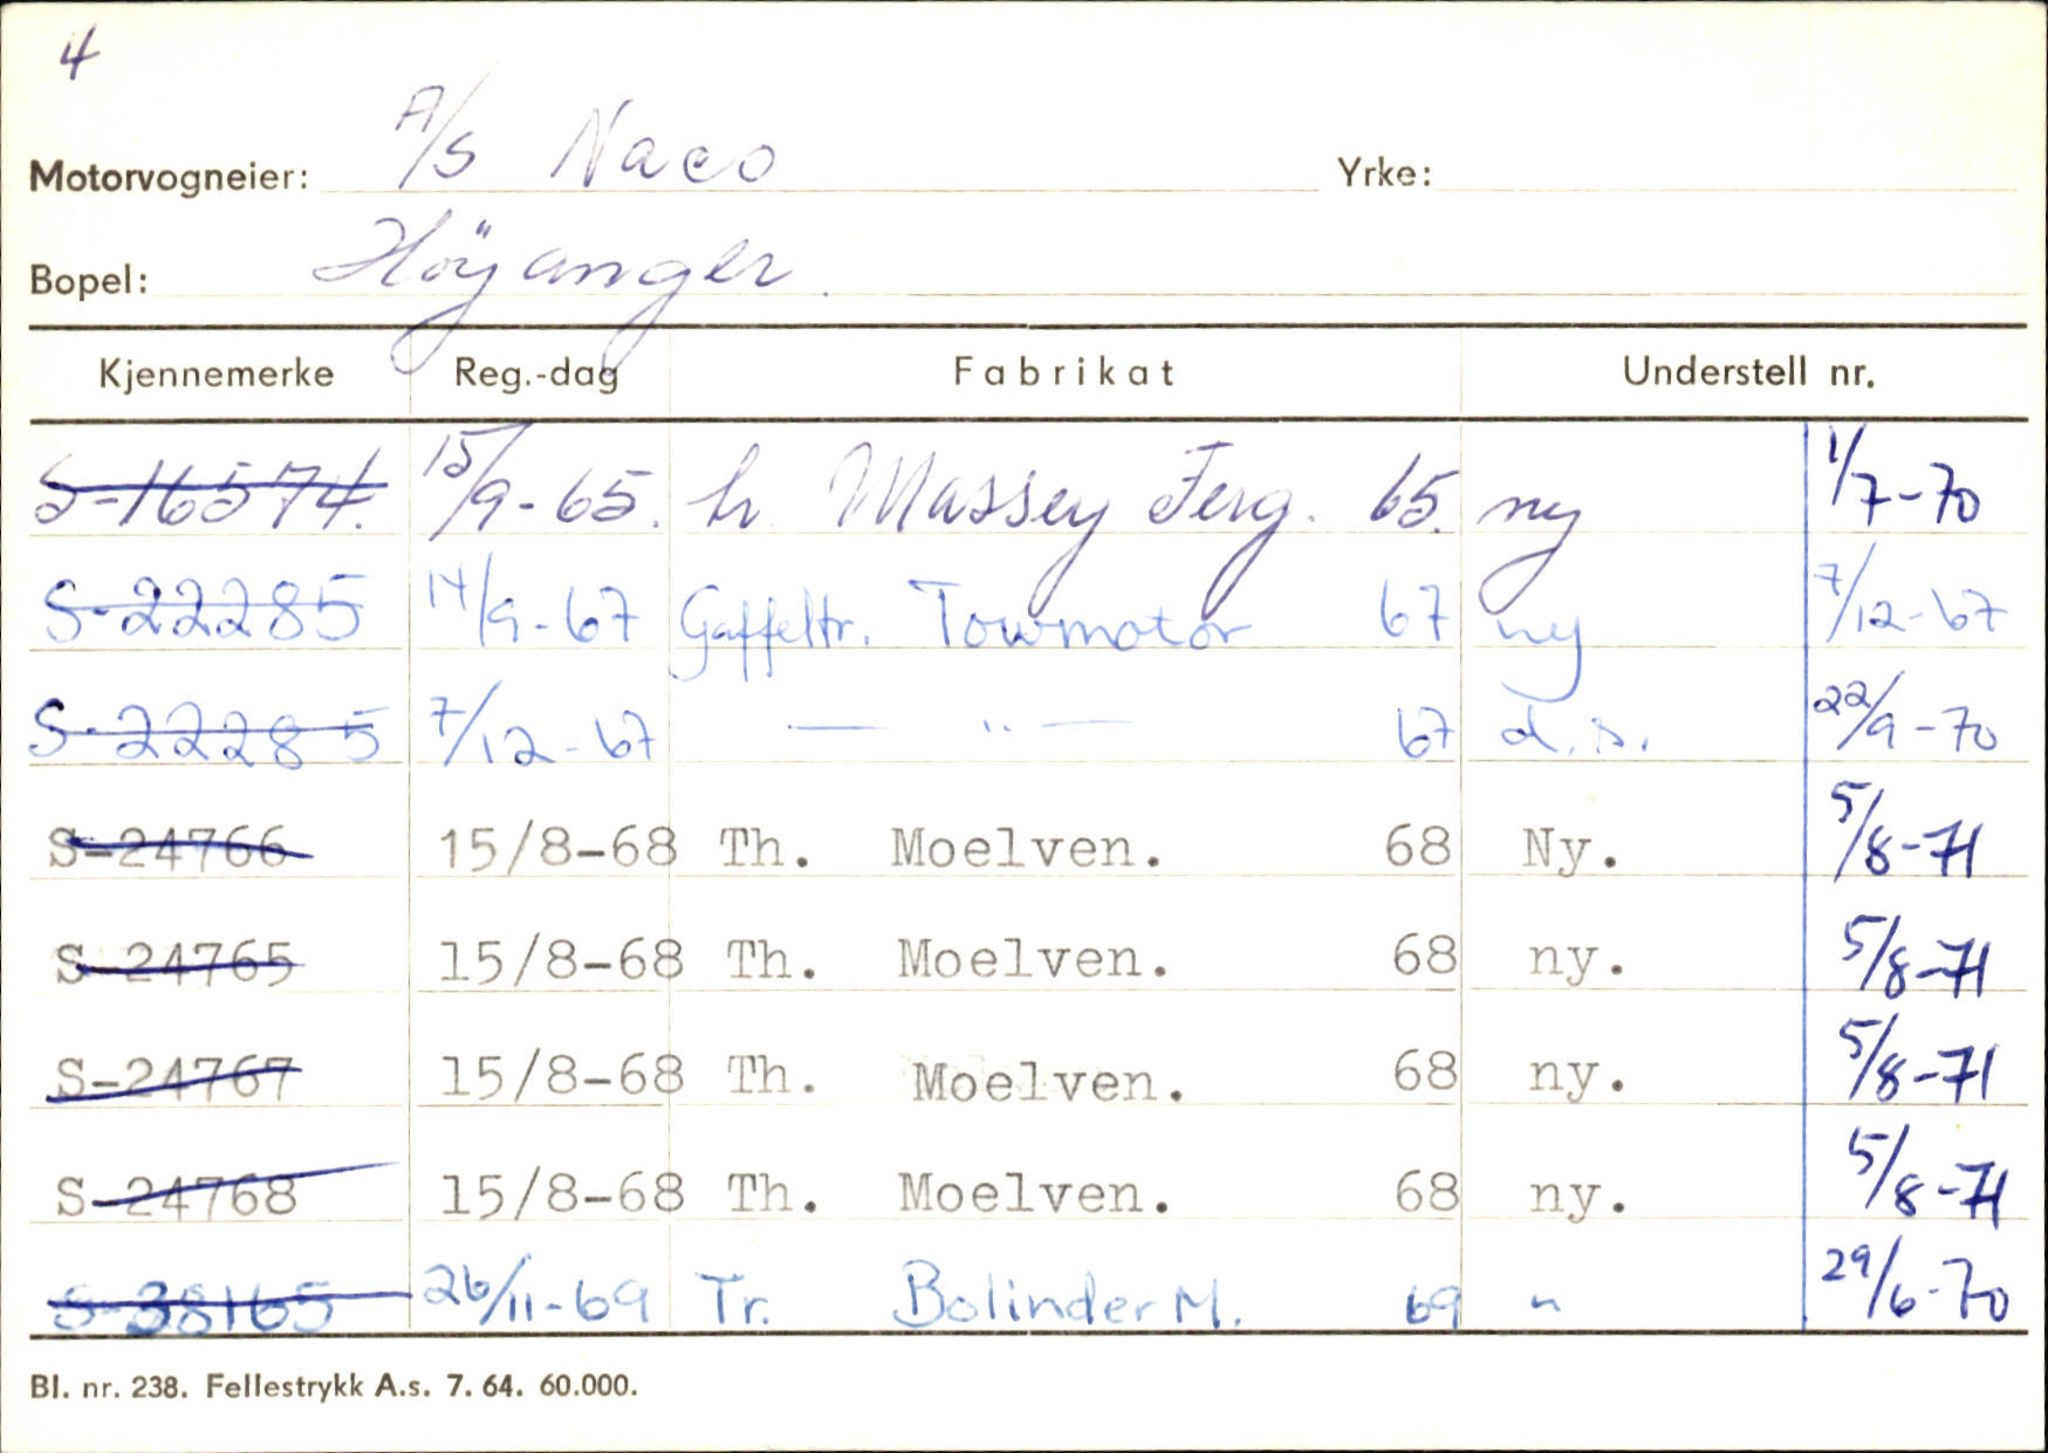 4
Motorvogneier: A/S Naco Yrke:
Bopel: Höyanger.
Kjennemerke Reg.-dag Fabrikat Understell nr.
S-16574. 15/9-65. hr. Massey Ferg. 65. ny 1/7-70
S-22285 14/9-67 Gaffeltr. Towmotor 67 ny 7/12-67
S-22285 7/12-67 — " — 67 d.s. 22/9-70
S-24766 15/8-68 Th. Moelven. 68 Ny. 5/8-71
S-24765 15/8-68 Th. Moelven. 68 ny. 5/8-71
S-24767 15/8-68 Th. Moelven. 68 ny. 5/8-71
S-24768 15/8-68 Th. Moelven. 68 ny. 5/8-71
S-38165 26/11-69 Tr. Bolinder M. 69 n 29/6-70
Bl. nr. 238. Fellestrykk A.s. 7. 64. 60.000.